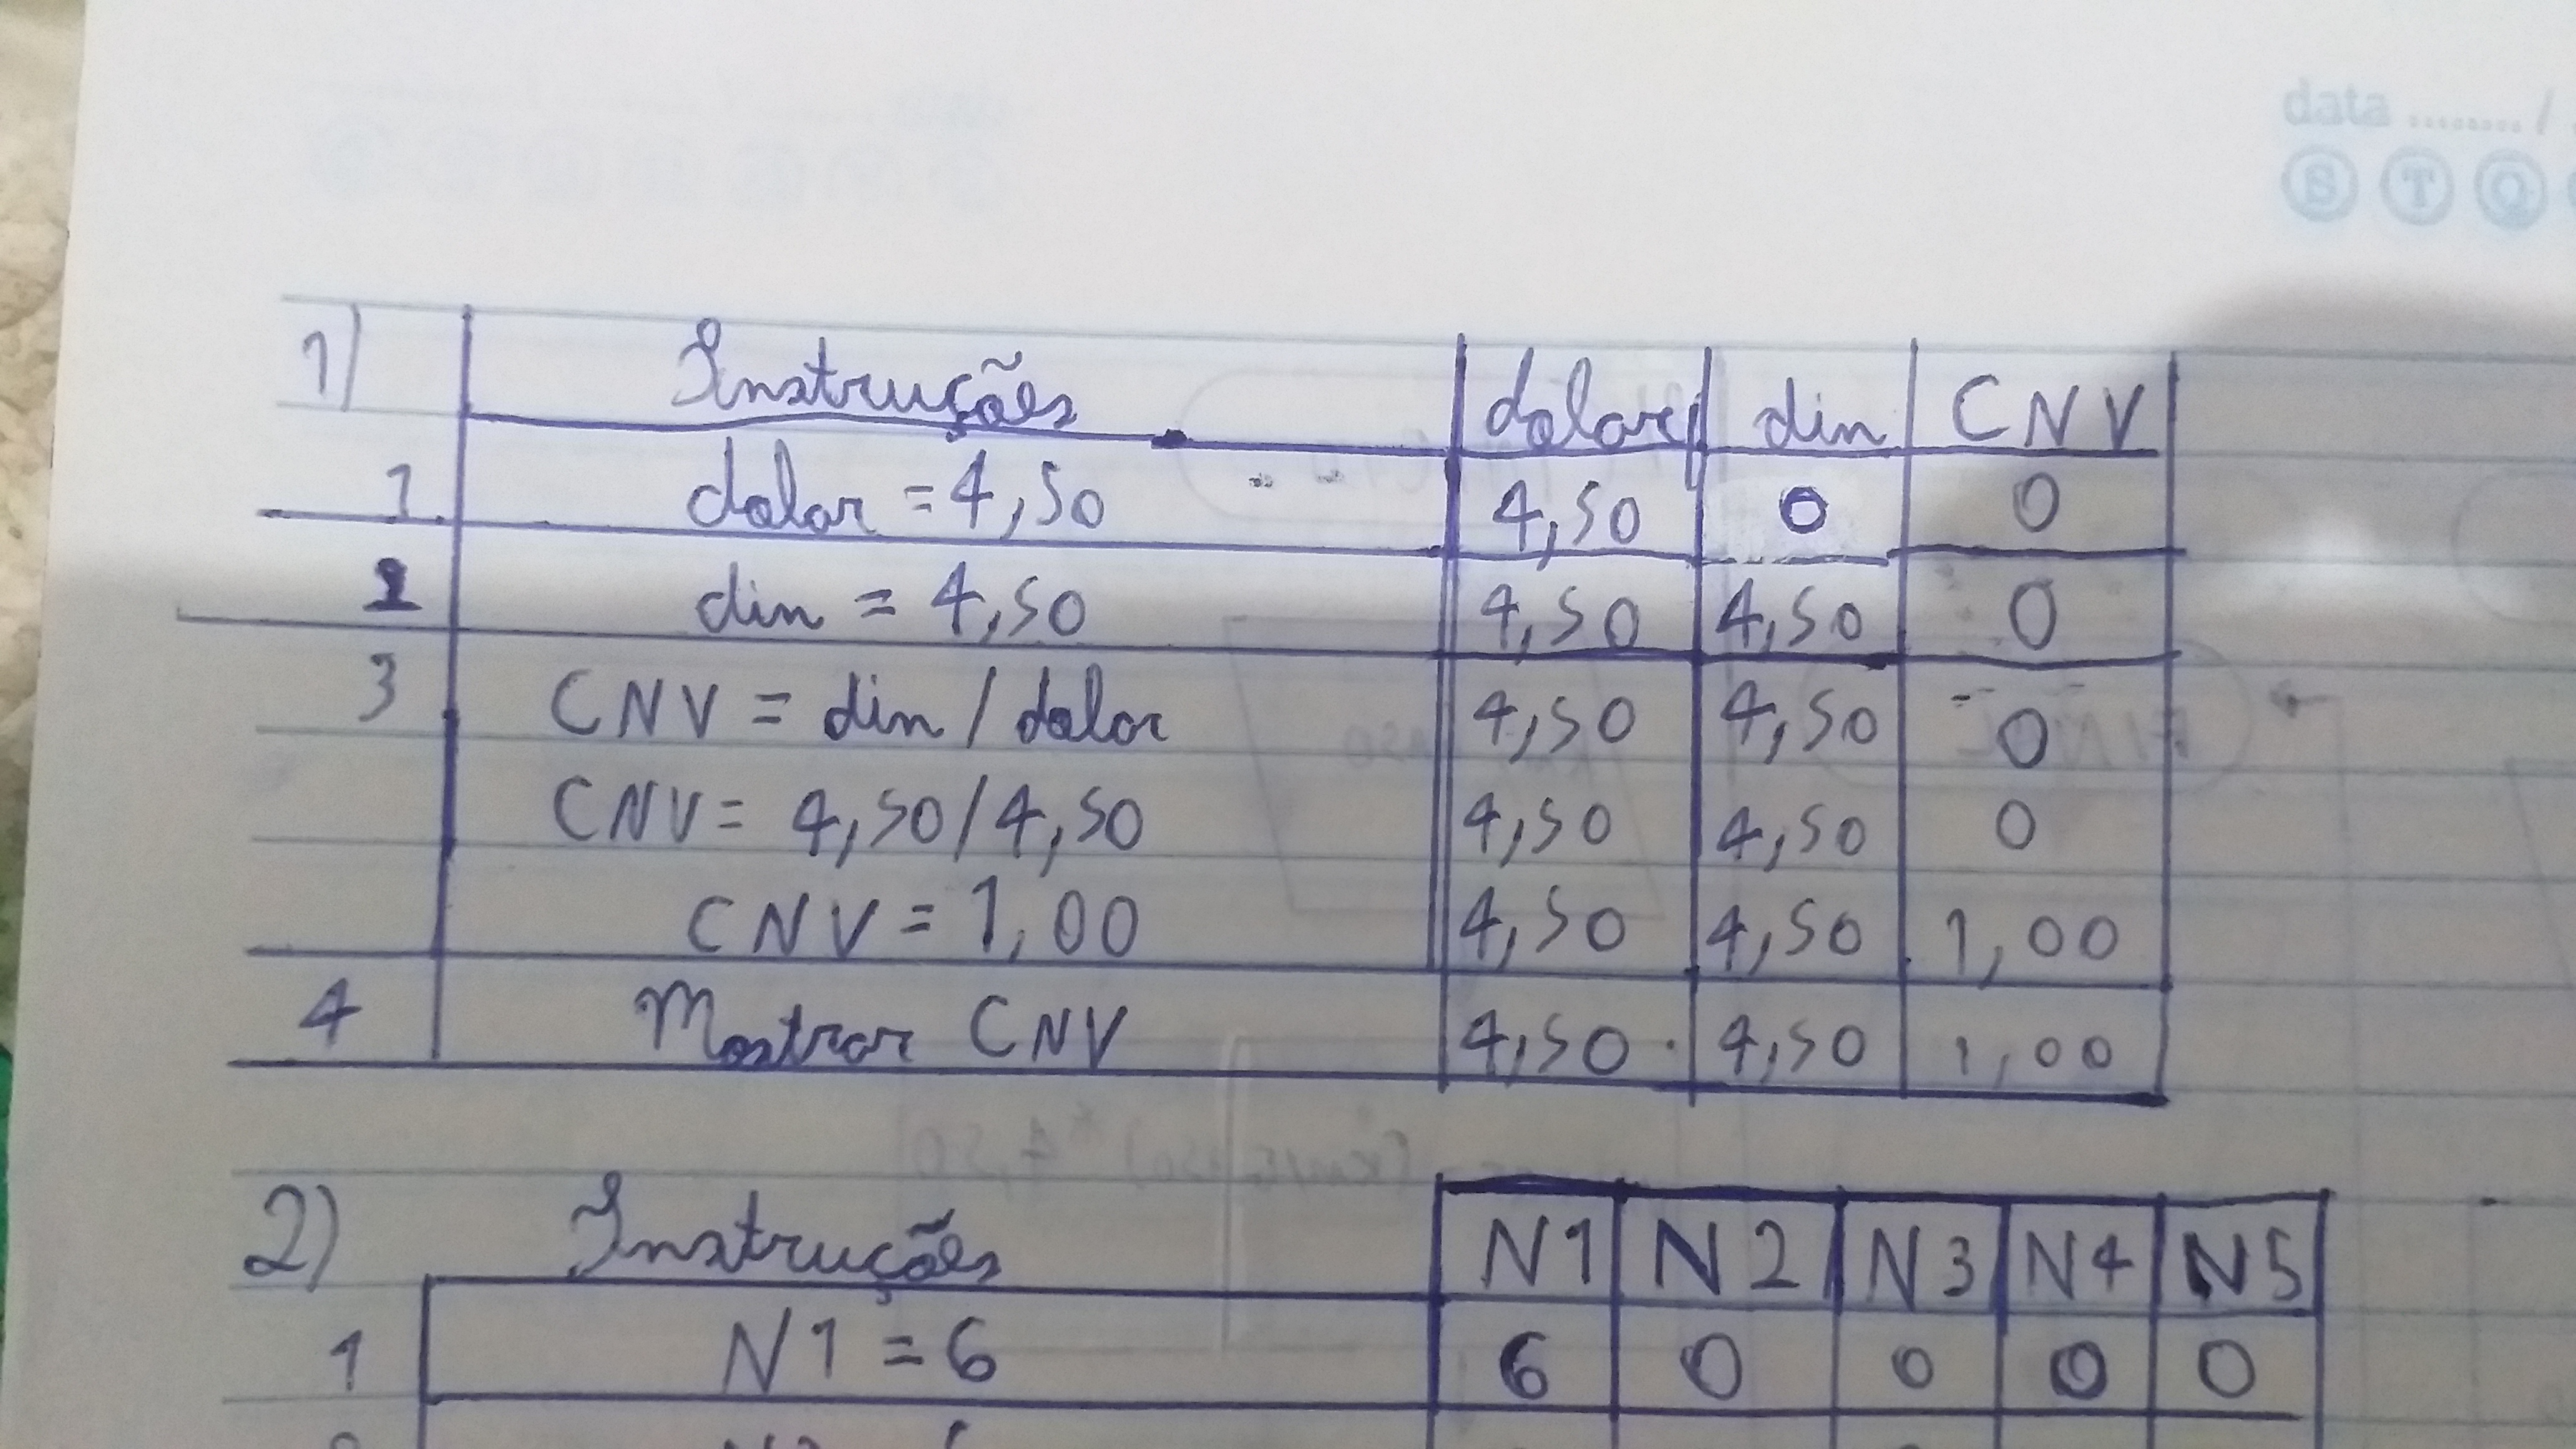 data ........ /
S T Q
1) Instruções dolar din CNV
1 dolar = 4,50 4,50 0 0
2 din = 4,50 4,50 4,50 0
3 CNV = din / dolar 4,50 4,50 0
CNV = 4,50 / 4,50 4,50 4,50 0
CNV = 1,00 4,50 4,50 1,00
4 Mostrar CNV 4,50 4,50 1,00
2) Instruções N1 N2 N3 N4 N5
1 N1 = 6 6 0 0 0 0